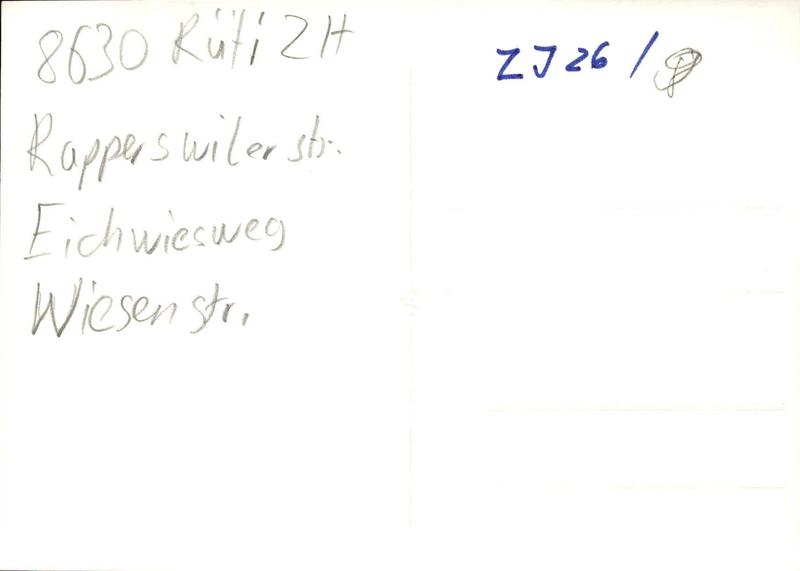 8630 Rüti ZH
Rapperswilerstr.
Eichwiesweg
Wiesenstr.
ZJ26/